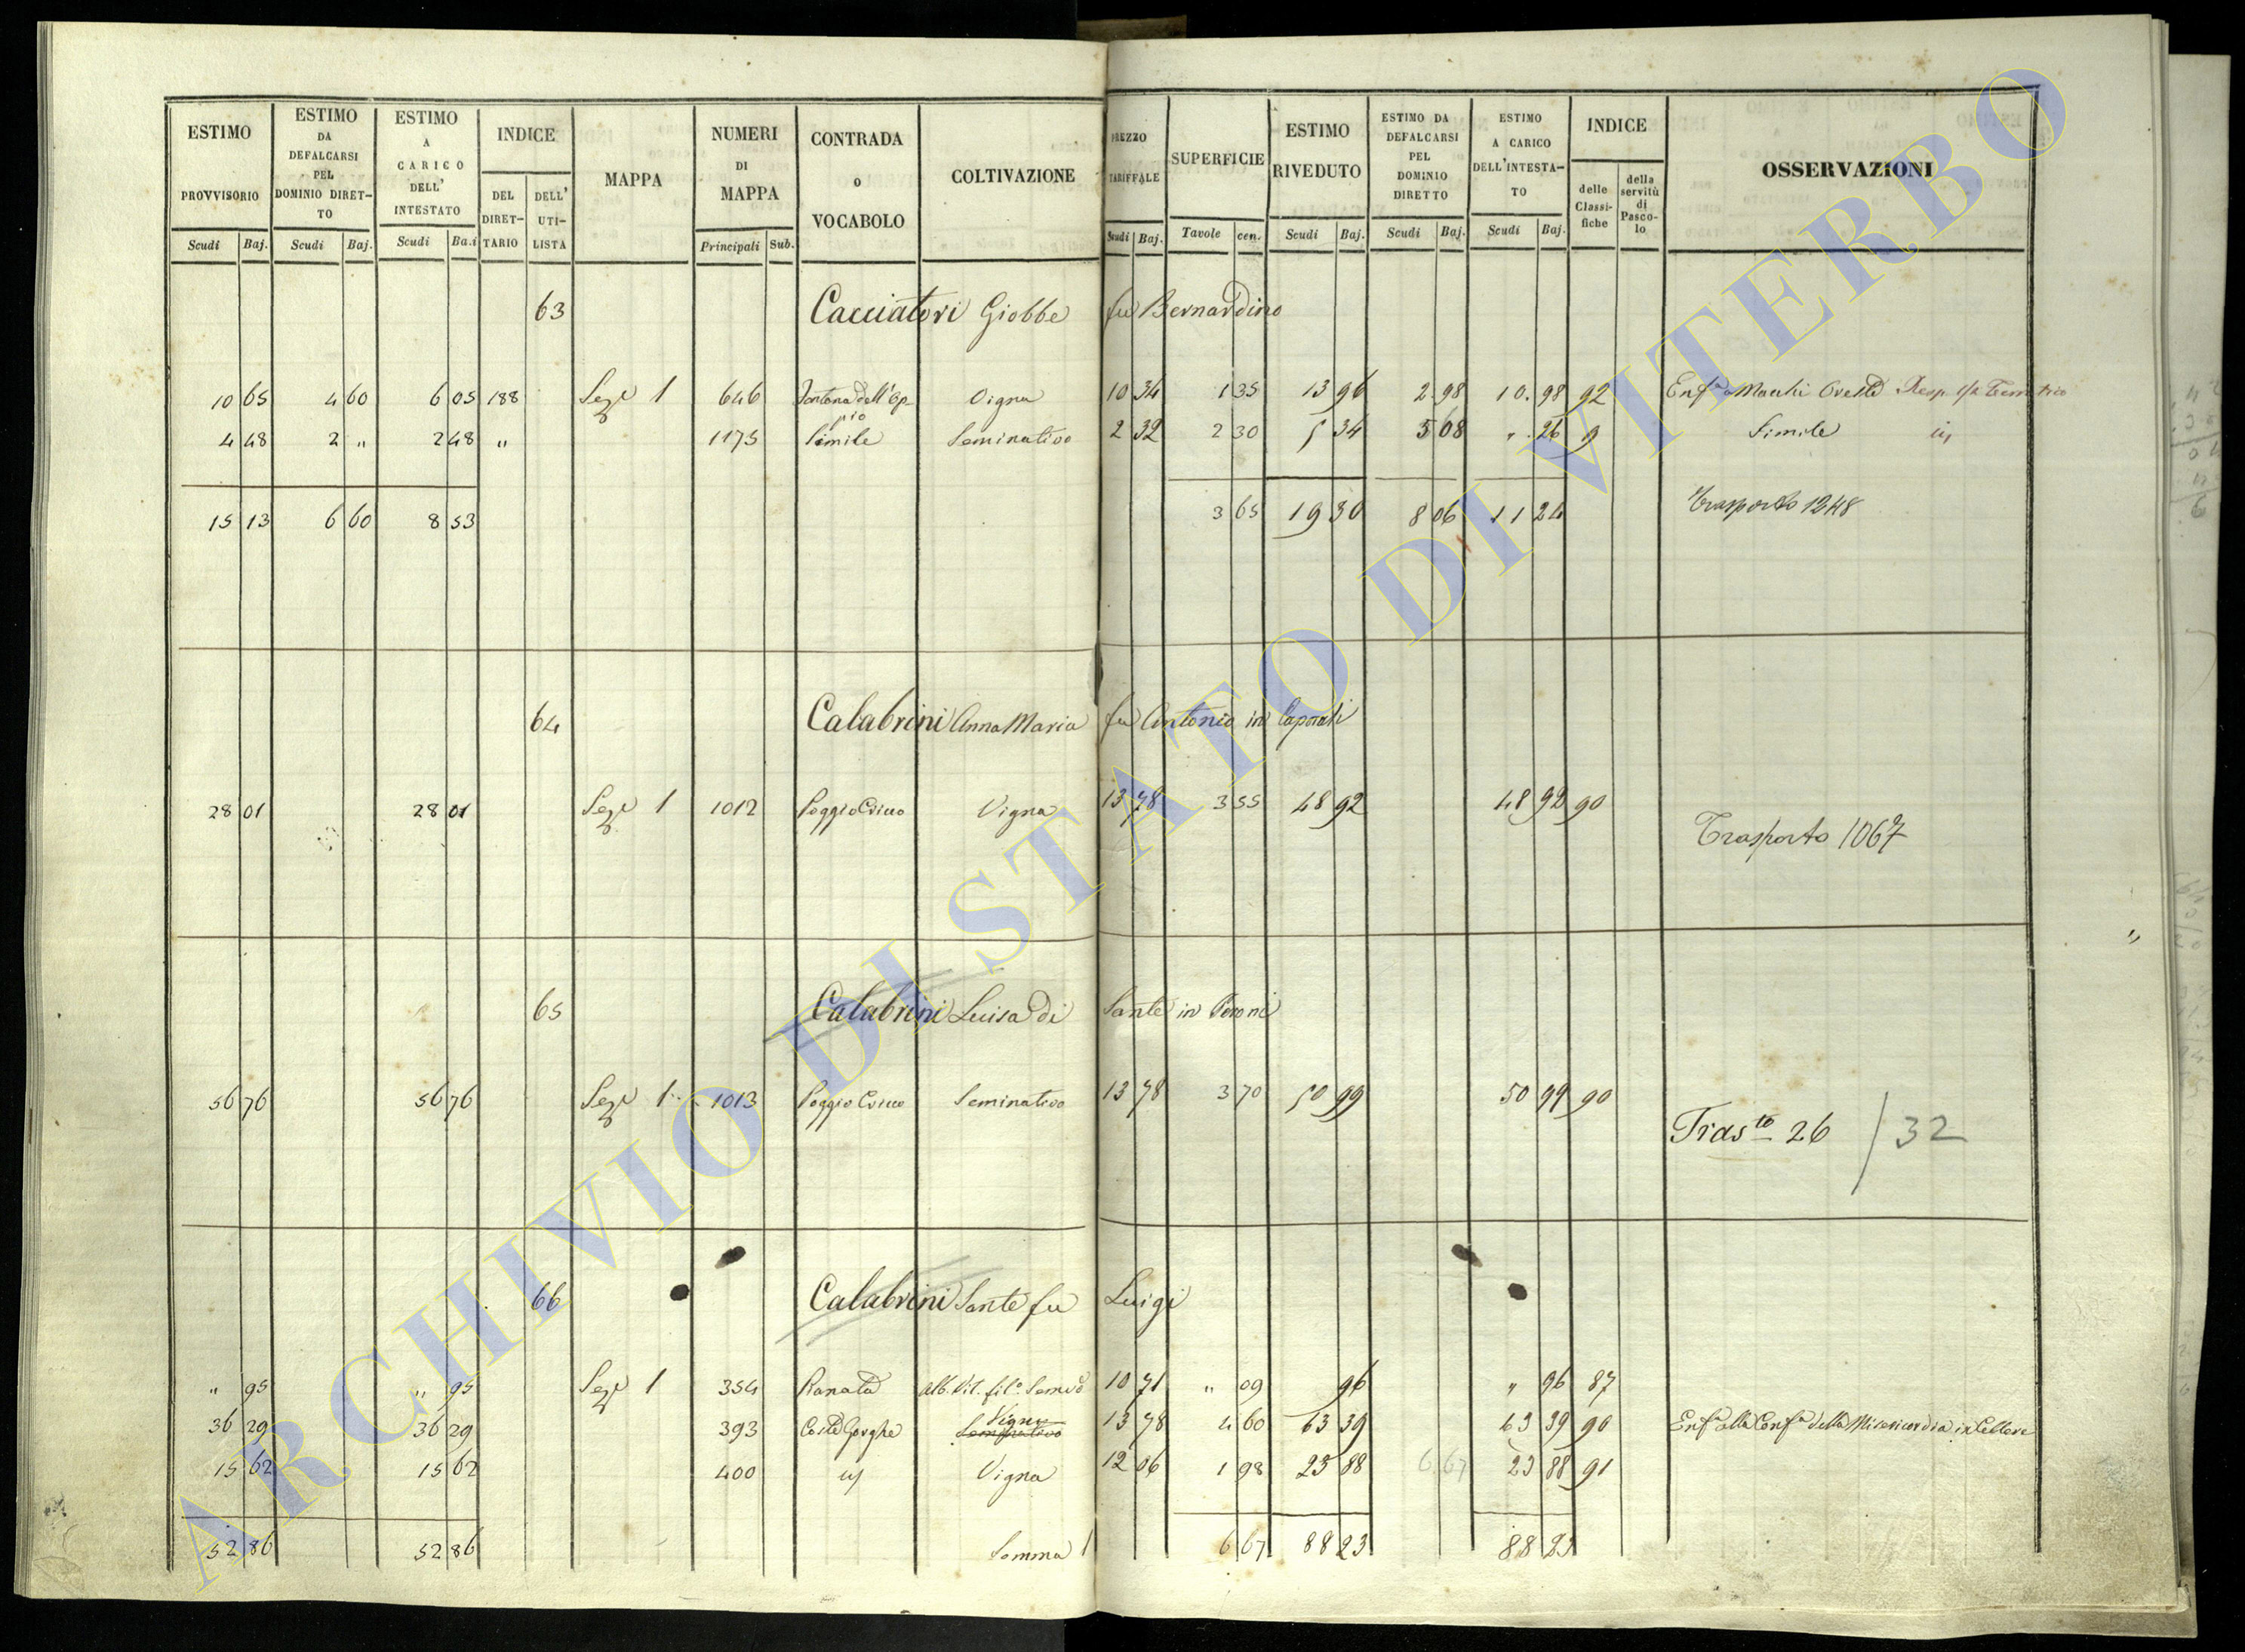 ESTIMO PROVVISORIO Scudi Baj.
ESTIMO DA DEFALCARSI PEL DOMINIO DIRET-TO Scudi Baj.
ESTIMO A CARICO DELL' INTESTATO Scudi Ba.i
INDICE DEL DIRET-TARIO DELL' UTI-LISTA
MAPPA
NUMERI DI MAPPA Principali Sub.
CONTRADA o VOCABOLO
COLTIVAZIONE
PREZZO TARIFFALE Scudi Baj.
SUPERFICIE Tavole cen.
ESTIMO RIVEDUTO Scudi Baj.
ESTIMO DA DEFALCARSI PEL DOMINIO DIRETTO Scudi Baj.
ESTIMO A CARICO DELL'INTESTA-TO Scudi Baj.
INDICE delle Classi-fiche della servitù di Pasco-lo
OSSERVAZIONI
63 Cacciatori Giobbe fu Bernardino
10 65 4 60 6 05 188 Sez.e 1 646 Fontana dell'Op-pio Vigna 10 34 1 35 13 96 2.98 10.98 92 Enf.a Macchi Oreste
4 48 2 " 2 48 " 1175 Simile Seminativo 2 32 2 30 5 34 5 08 " 26 9 Simile
15 13 6 60 8 53 3 65 19 30 8 06 11 24 Trasporto 1248
64 Calabrini Anna Maria fu Antonio in Caporali
28 01 28 01 Sez.e 1 1012 Poggio Cricco Vigna 13 78 3 55 48 92 48 92 90
Trasporto 1067
65 Calabrini Luisa di Sante in Peroni
56 76 56 76 Sez.e 1 1013 Poggio Cricco Seminativo 13 78 3 70 50 99 50 99 90
Tras.to 26 / 32
66 Calabrini Sante fu Luigi
" 95 " 95 Sez.e 1 354 Banata alb. vit. fil.o Semvo 10 71 " 09 96 " 96 87
36 29 36 29 393 Coste Gorghe Vigna Seminativo 13 78 4 60 63 39 63 39 90 Enf.a alla Conf.a della Misericordia in Cellere
15 62 15 62 400 id Vigna 12 06 1 98 23 88 6 67 23 88 91
52 86 52 86 Somma 6 67 88 23 88 23
ARCHIVIO DI STATO DI VITERBO